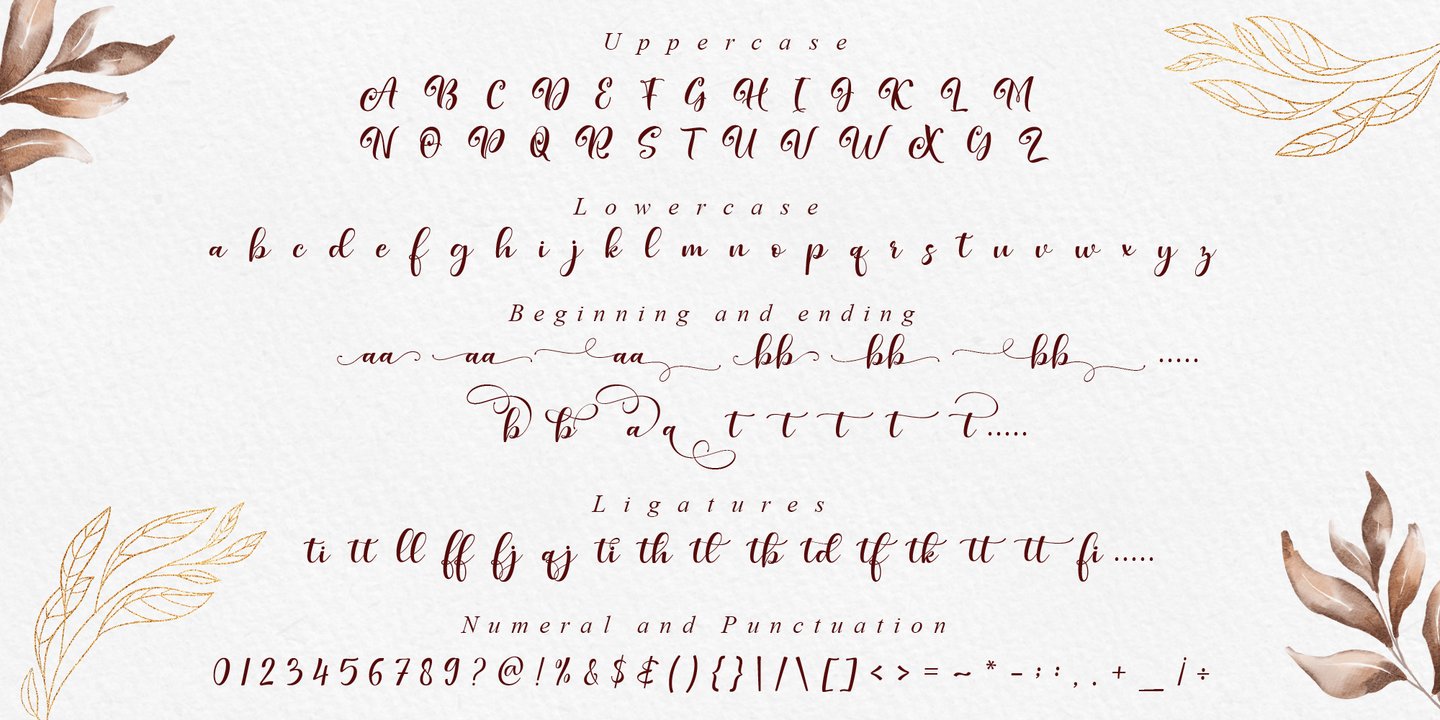 Uppercase
A B C D E F G H I J K L M
N O P Q R S T U V W X Y Z
Lowercase
a b c d e f g h i j k l m n o p q r s t u v w x y z
Beginning and ending
aa aa aa bb bb bb .....
b b a a t t t t t.....
Ligatures
ti tt ll ff fj qj ti th tl tb td tf tk tt tt fi .....
Numeral and Punctuation
0 1 2 3 4 5 6 7 8 9 ? @ ! % & $ ₤ ( ) { } | / \ [ ] < > = ~ * - ; : , . + _ ¡ ÷